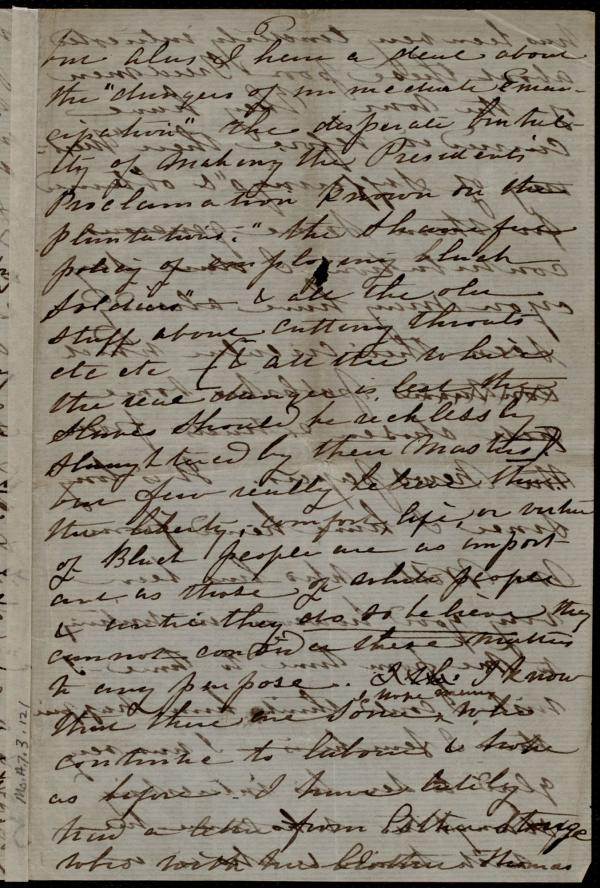 one alas, I hear a deal about
the "dangers of immediate Eman-
cipation" the desperate futili-
ty of making the Presidents
Proclamation known on the
plantations." the shameful
policy of employing black
soldiers" & all the old
stuff about cutting throats
etc etc (& all the while
the real danger is, lest the
slaves should be recklessly
slaughtered by their Masters).
but few really believe that
the liberty, comfort, life, or virtue
of Black people are as import-
ant as those of white people
& until they do so believe they
cannot consider these matters
to any purpose. I know
& more
that there are some, who
continue to labour & hope
as before. I have lately
had a letter from Esther Sturge
who with her brother Thomas
Ms.A.7.3.121